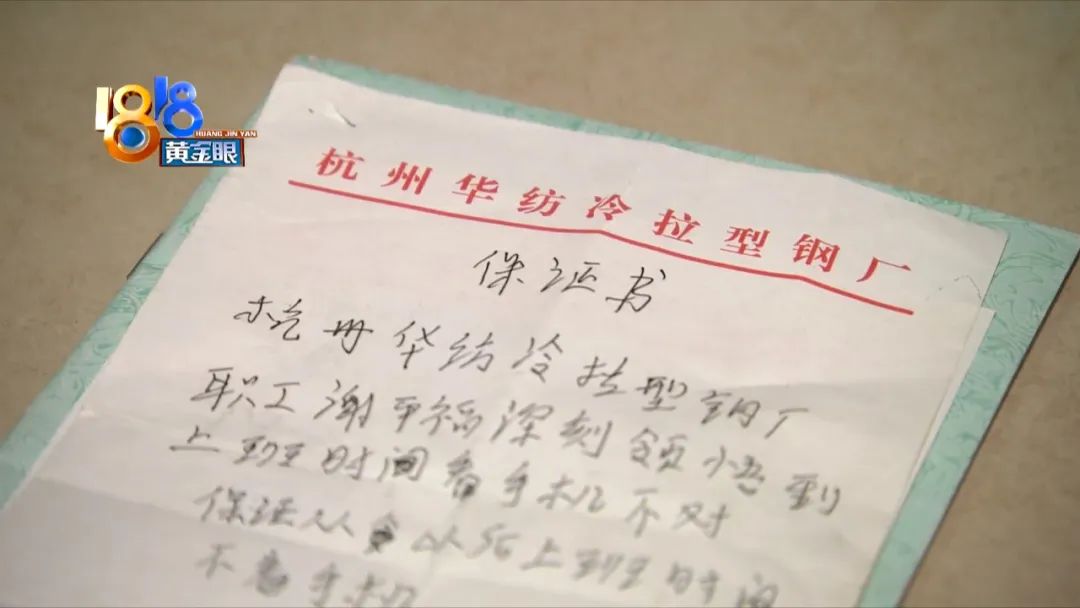 1818
HUANG JIN YAN
黄金眼
杭州华纺冷拉型钢厂
保证书
杭州华纺冷拉型钢厂
职工谢平福深刻领悟到
上班时间看手机不对
保证从今以后上班时间
不看手机